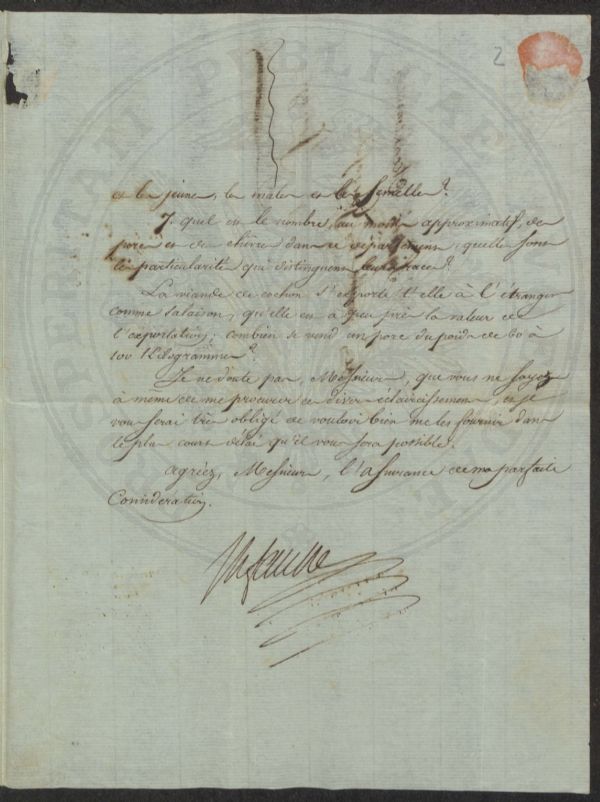 2
et les jeunes, les males et les femelles?
7. quel est le nombre, au moins approximatif, des
porcs et des chèvres dans ce département, quelles sont
les particularités qui distinguent leurs races?
La viande de cochon s'exporte t'elle à l'étranger
comme salaison, qu'elle est à peu près la valeur de
l'exportation; combien se vend un porc du poids de 60 à
100 Kilogrammes?
Je ne doute pas, Messieurs, que vous ne soyez
à même de me procurer ces divers éclaircissemens, et je
vous serai très obligé de vouloir bien me les fournir dans
le plus court délai qu'il vous sera possible.
Agréez, Messieurs, l'assurance de ma parfaite
Considération.